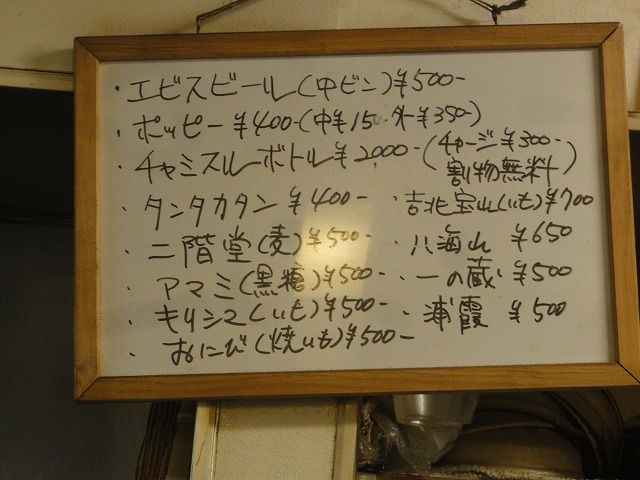 ・エビスビール(中ビン)¥500-
・ホッピー ¥400-(中¥150 外¥350)
・チャミスルボトル¥2000-(チャージ¥300- 割物無料)
・タンタカタン ¥400-
・二階堂(麦)¥500-
・アマミ(黒糖)¥500-
・キリシマ(いも)¥500-
・おにび(焼いも)¥500-
・吉兆宝山(いも)¥700
・八海山 ¥650
・一の蔵 ¥500
・浦霞 ¥500